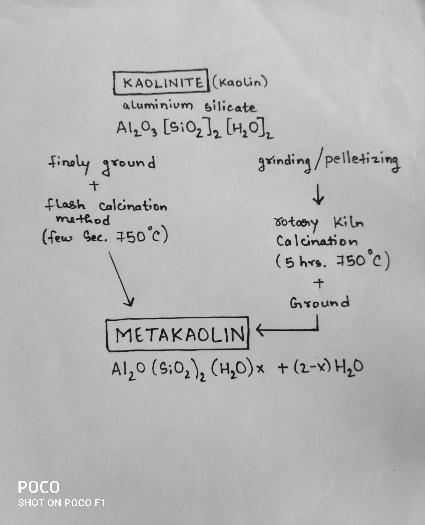 KAOLINITE (Kaolin)
aluminium silicate
Al₂O₃ [SiO₂]₂ [H₂O]₂
finely ground
+
flash calcination
method
(few Sec. 750°C)
grinding/pelletizing
rotary Kiln
Calcination
(5 hrs. 750°C)
+
Ground
METAKAOLIN
Al₂O (SiO₂)₂ (H₂O)x + (2-x) H₂O
POCO
SHOT ON POCO F1